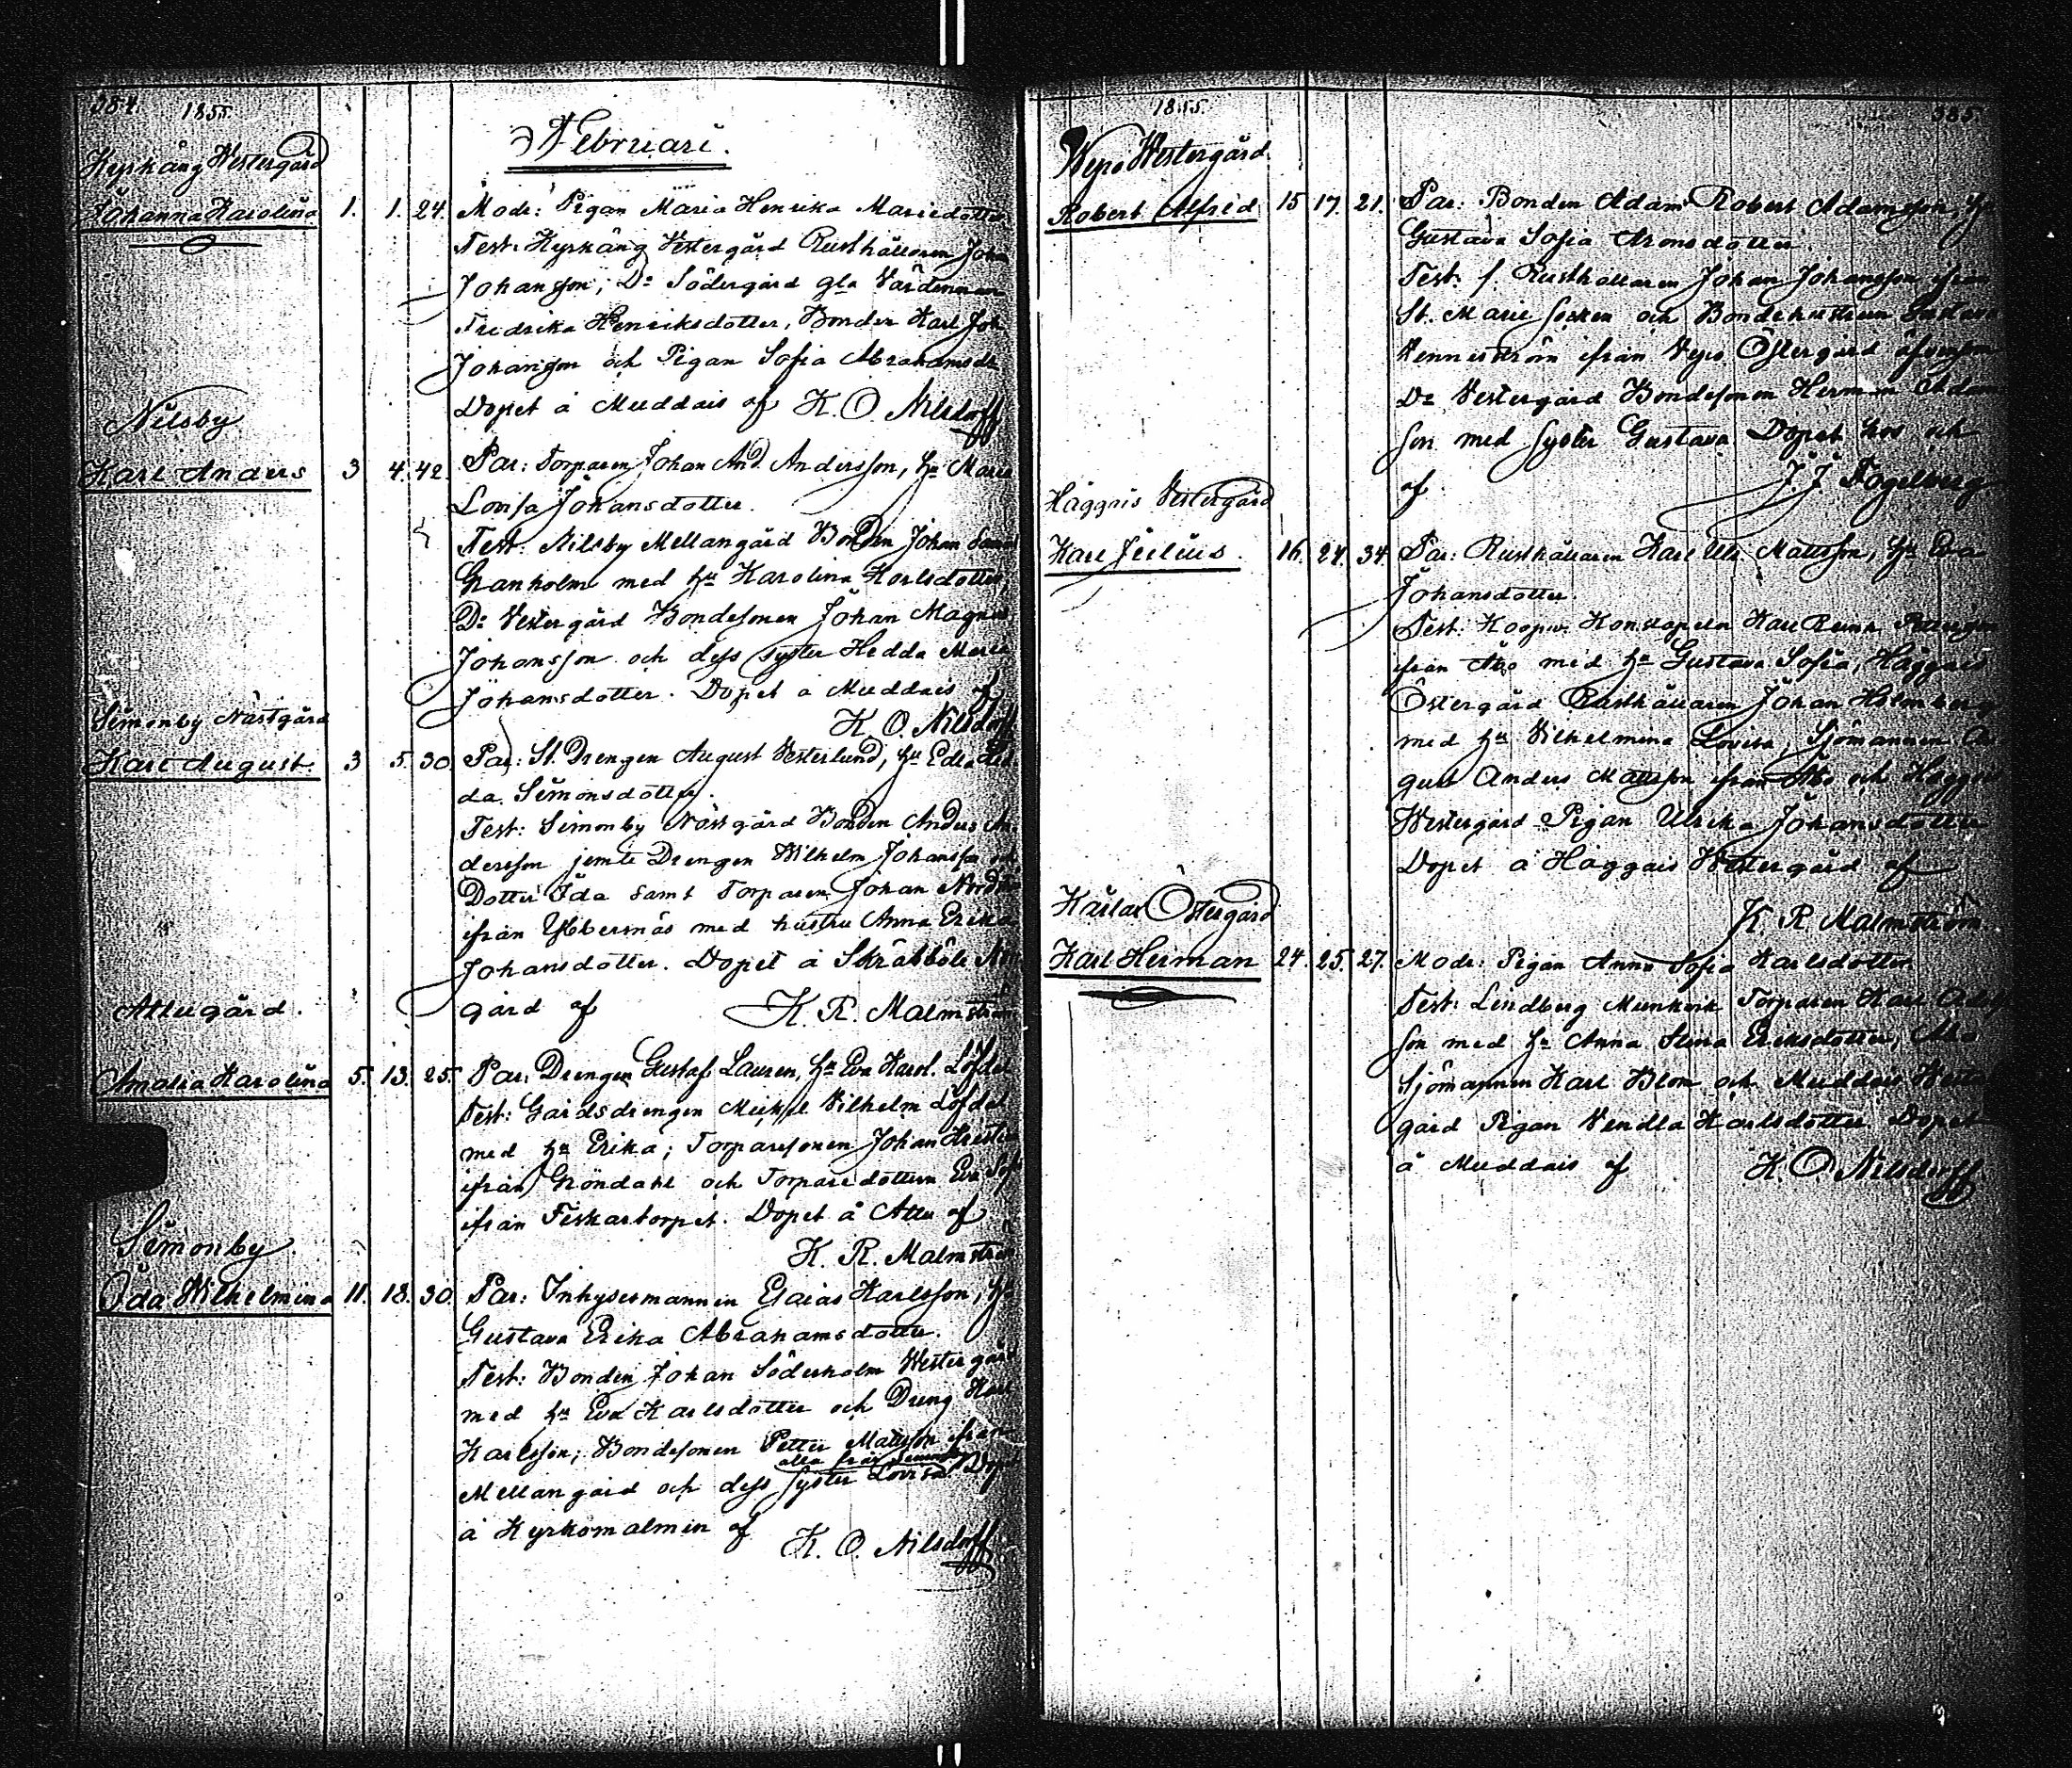 384. 1855.
Februari.
Kyrkäng Westergård
Johanna Karolina 1. 1. 24. Modr: Pigan Maria Henrika Mariedotter
Test: Kyrkäng Vestergård Rusthållaren Johan
Johansson, Do Södergård gla Värdinnan
Fredrika Henriksdotter, Bonden Karl Joh.
Johansson och Pigan Sofia Abrahamsdr
Dopet å Muddais af K. O. Nilsdorff
Nilsby
Karl Anders 3 4. 42. Par: Torparen Johan And. Andersson, hu Maria
Lovisa Johansdotter.
Test: Nilsby Mellangård Bonden Johan
Granholm med hu Karolina Karlsdotter,
Do Vestergård Bondesonen Johan Magnus
Johansson och dess syster Hedda Maria
Johansdotter. Dopet å Muddais af
K. O. Nilsdorff
Simonby Nästgård
Karl August. 3 5. 30. Par: St. Drengen August Vesterlund, hu
da Simonsdotter.
Test: Simonby Nästgård Bonden Anders An-
dersson jemte Drengen Wilhelm Johansson och
Dotter Ida samt Torparen Johan
ifrån Ybbernäs med hustru Anna Erika
Johansdotter. Dopet å Skräbböle
gård af K. R. Malmström
Attugård.
Amalia Karolina 5. 13. 25. Par: Drengen Gustaf Lauren, hu Eva Karol. Löfdal
Test: Gårdsdrengen Mickel Vilhelm Löfdal
med hu Erika; Torparesonen Johan
ifrån Gröndahl och Torparedottern Eva Sofi
ifrån Fiskartorpet. Dopet å Attu af
K. R. Malmström
Simonby
Ida Wilhelmina 11. 18. 30. Par: Inhysesmannen Esaias Karlsson, hu
Gustava Erika Abrahamsdotter.
Test: Bonden Johan Söderholm Westergård
med hu Eva Karlsdotter och Dreng Karl
Karlsson; Bondesonen Petter Mattsson ifrån
alla från Simonby
Mellangård och dess syster Lovisa. Dopet
å Kyrkomalmen af K. O. Nilsdorff
1855. 385.
Wepo Westergård
Robert Alfrid 15 17. 21. Par: Bonden Adam Robert Adamsson, hu
Gustava Sofia Aronsdotter.
Test: f. Rusthållaren Johan Johansson ifrån
St. Marie socken och Bondehustrun Gustava
Vennström ifrån Vepo Östergård äfvensom
Do Vestergård Bondesonen Herman Adam
son med syster Gustava Dopet hos och
af J. J. Fogelberg
Häggnis Vestergård
Karl Julius. 16. 24. 34. Par: Rusthållaren Karl Ulr. Mattsson, hu Eva
Johansdotter.
Test: Koopv. Konstapeln Karl
ifrån Åbo med hu Gustava Sofia, Häggnis
Östergård Rusthållaren Johan Holmberg
med hu Vilhelmina Lovisa, Sjömannen Au
gust Anders Mattsson ifrån Åbo och Häggnis
Westergård Pigan Ulrika Johansdotter
Dopet å Häggais Westergård af
K. R. Malmström
Kärlax Östergård
Karl Herman 24. 25. 27. Modr: Pigan Anna Sofia Karlsdotter.
Test: Lindberg Munkvik Torparen Karl
son med hu Anna Stina Eriksdotter, Åbo
Sjömannen Karl Blom och Muddais
gård Pigan Vendla Karlsdotter Dopet
å Muddais af K. O. Nilsdorff